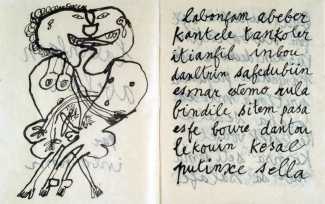 labonfam abeber
kantele tankoter
itianfil inbou
danlbin safedubiin
esmar otemo rula
bindile sitem pasa
esfe boure dantou
lekouin kesal
putinxe sella